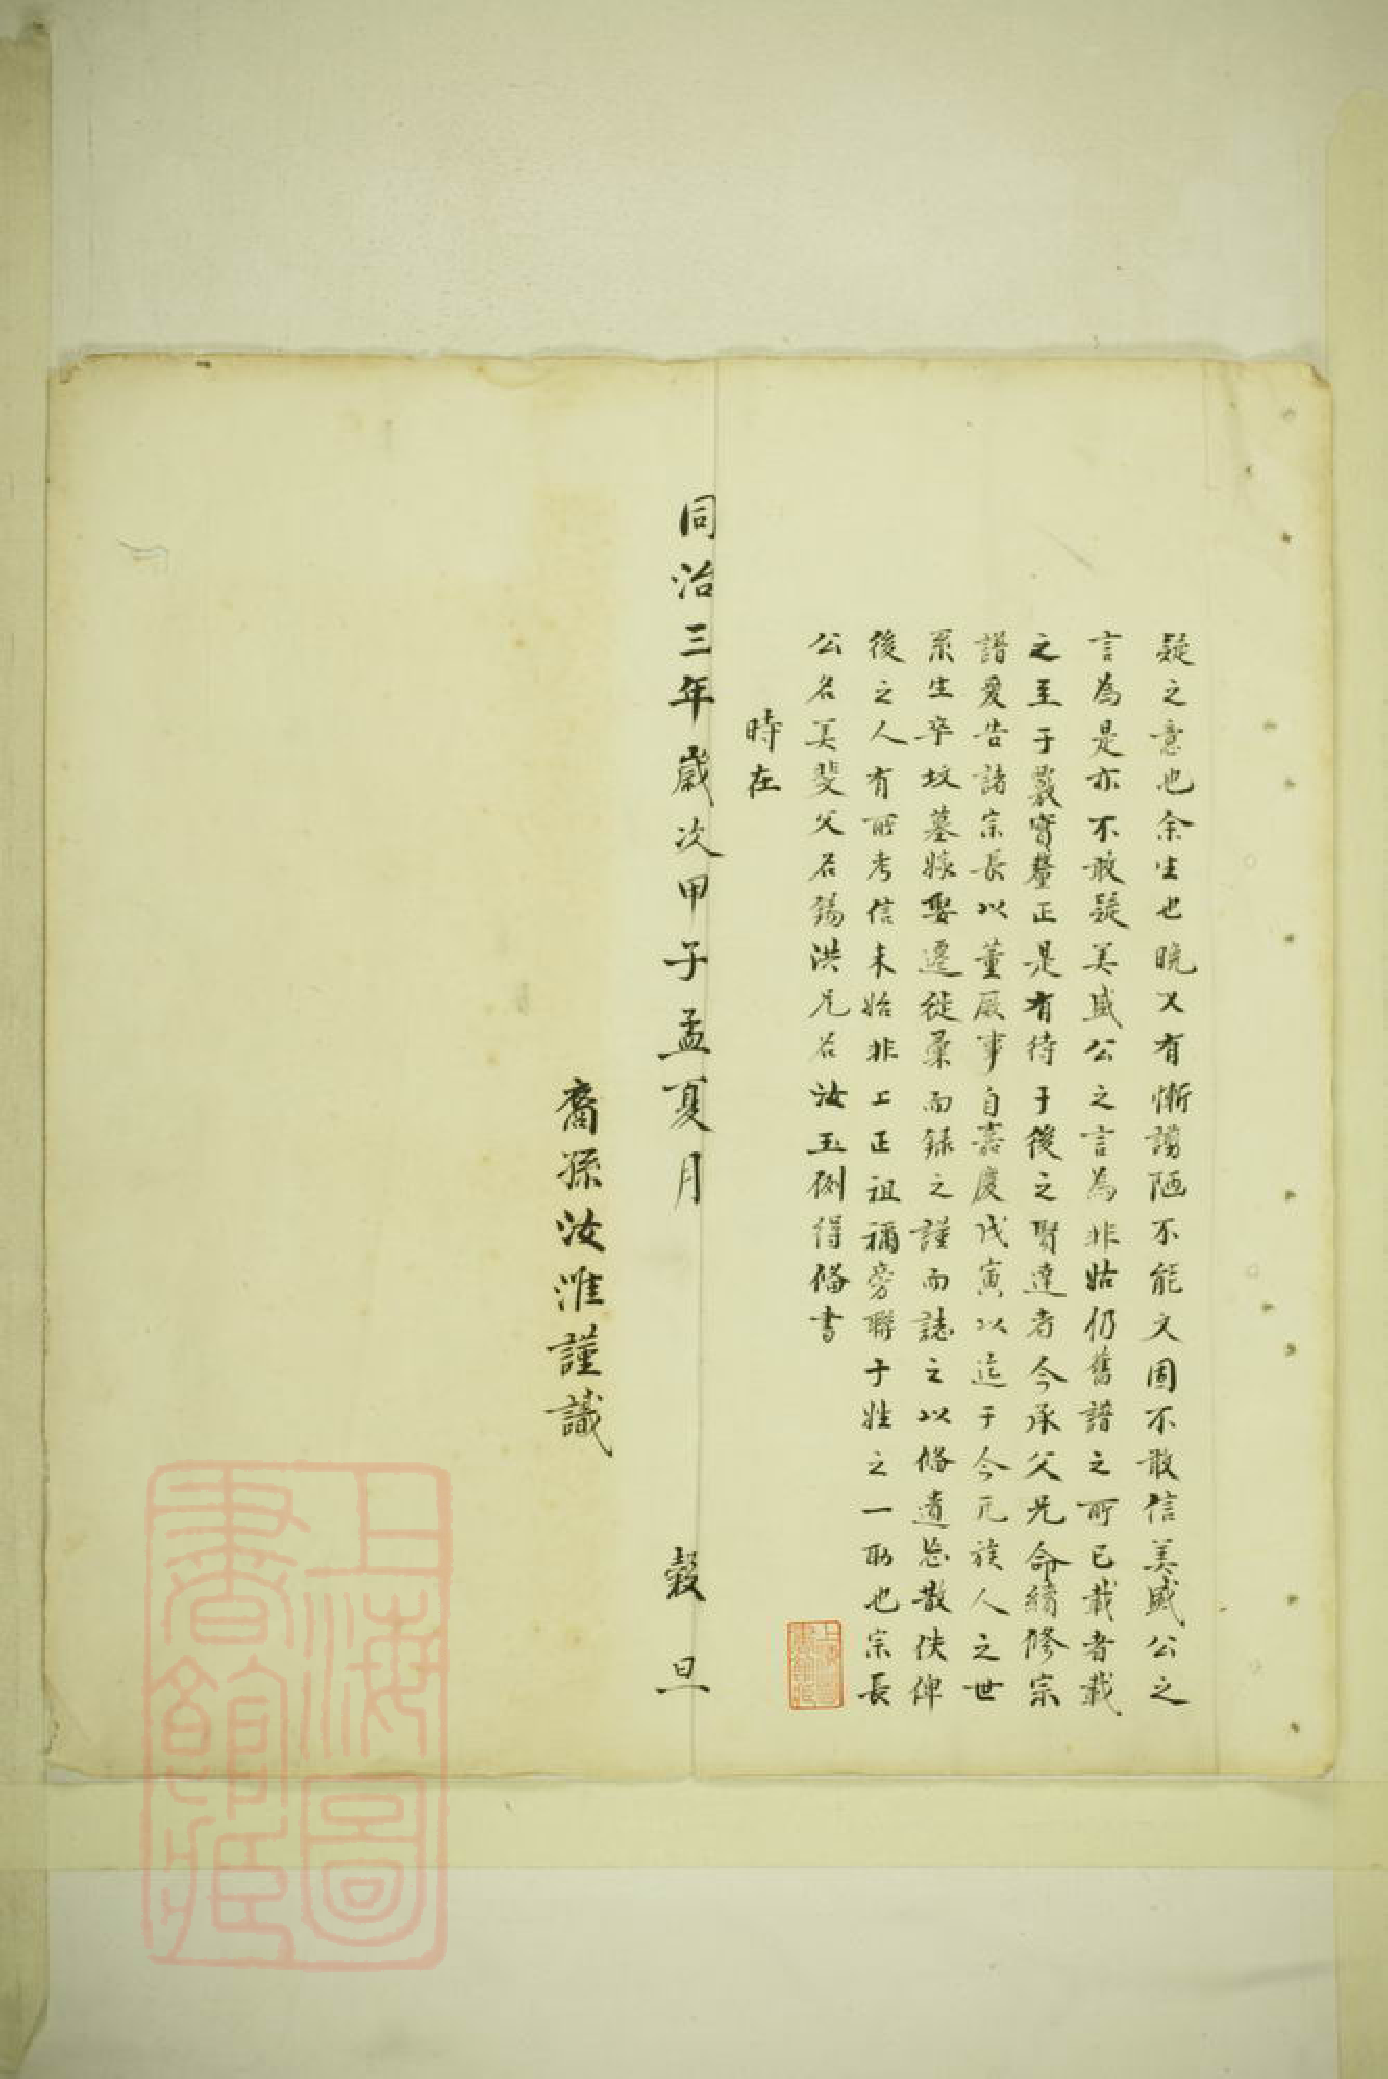 疑之意也余生也晚又有慚譾陋不能文固不敢信美盛公之
言為是亦不敢疑美盛公之言為非姑仍舊譜之所已載者載
之至于覈實釐正是有待于後之賢達者今承父兄命續修宗
譜爰告諸宗長以董厥事自嘉慶戊寅以迄于今凡族人之世
系生卒坟墓嫁娶遷徙彙而録之謹而誌之以俻遺忘散佚俾
後之人有所考信未始非上正祖禰旁聯于姓之一助也宗長
公名美斐父名錫洪兄名汝玉例得俻書
時在
同治三年歲次甲子孟夏月 穀旦
裔孫汝淮謹識
上海圖書館藏
上海圖書館藏